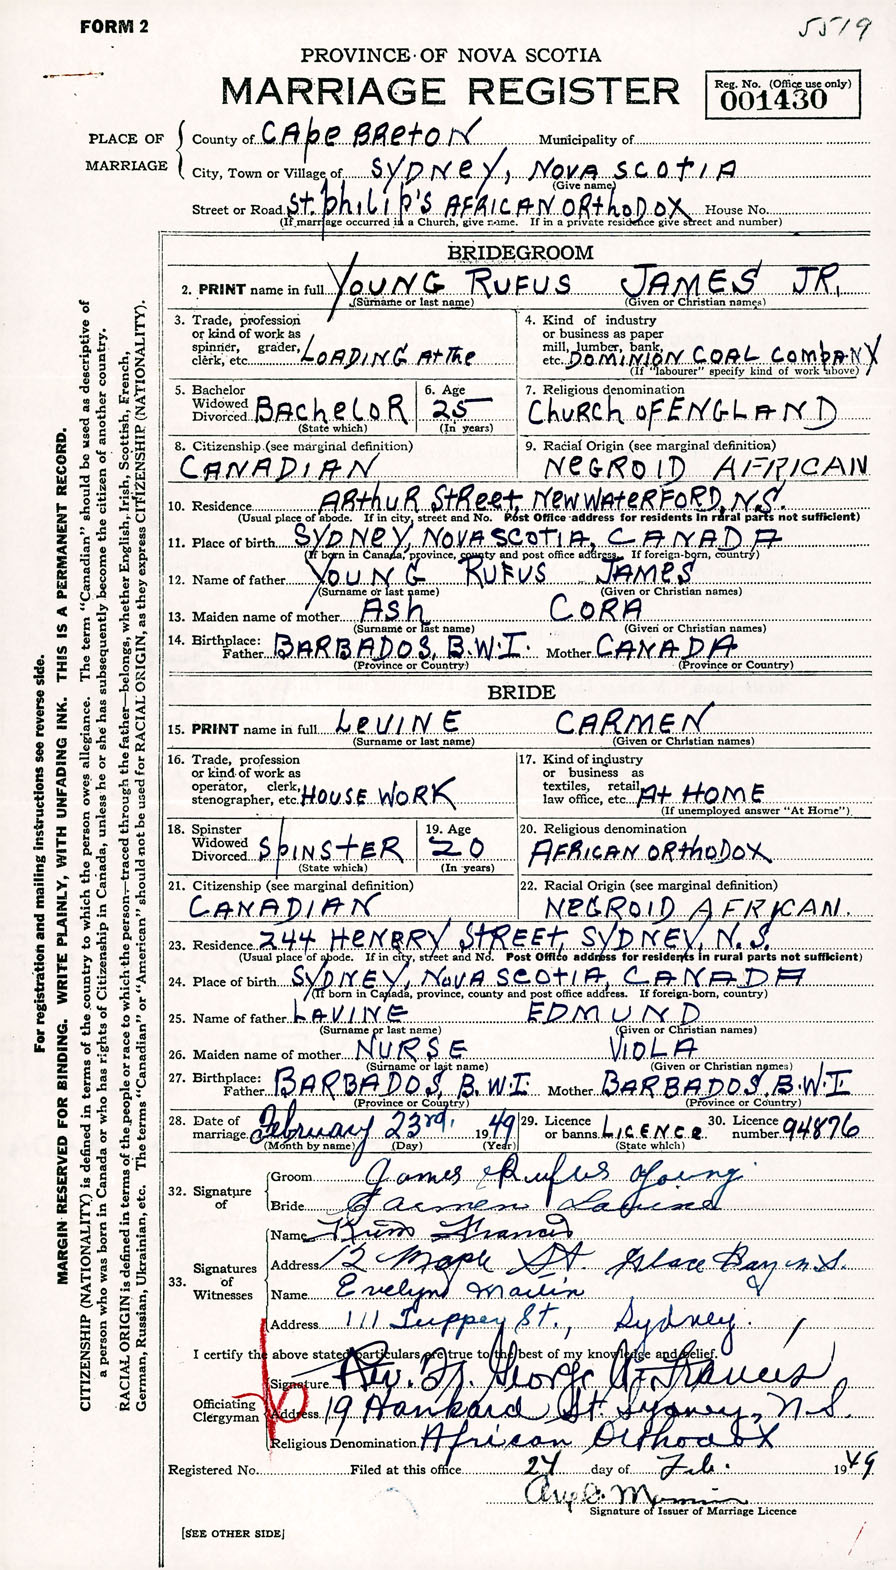 FORM 2
5519
PROVINCE OF NOVA SCOTIA
MARRIAGE REGISTER
Reg. No. (Office use only)
001430
PLACE OF MARRIAGE
County of CApe BReton Municipality of
City, Town or Village of SYDNeY, NOVA SCOtIA
(Give name)
Street or Road St. philip's AFRICAN ORthODOX House No.
(If marriage occurred in a Church, give name. If in a private residence give street and number)
BRIDEGROOM
2. PRINT name in full YOUNG RUFUS JAMES JR.
(Surname or last name) (Given or Christian names)
3. Trade, profession or kind of work as spinner, grader, clerk, etc. LOADING At the
4. Kind of industry or business as paper mill, lumber, bank, etc. DOMINION COAL COMPANY
(If "labourer" specify kind of work above)
5. Bachelor Widowed Divorced BACheLOR
(State which)
6. Age 25
(In years)
7. Religious denomination
ChuRch OF ENGLAND
8. Citizenship (see marginal definition)
CANADIAN
9. Racial Origin (see marginal definition)
NeGROID AFRICAN
10. Residence ARthuR StReet, NEW WAteRFORD, N.S.
(Usual place of abode. If in city, street and No. Post Office address for residents in rural parts not sufficient)
11. Place of birth SYDNeY, NOVA SCOtIA, CANADA
(If born in Canada, province, county and post office address. If foreign-born, country)
12. Name of father YOUNG RUFUS JAMES
(Surname or last name) (Given or Christian names)
13. Maiden name of mother ASh CORA
(Surname or last name) (Given or Christian names)
14. Birthplace: Father BARBADOS, B.W.I. Mother CANADA
(Province or Country) (Province or Country)
BRIDE
15. PRINT name in full LeVINE CARMEN
(Surname or last name) (Given or Christian names)
16. Trade, profession or kind of work as operator, clerk, stenographer, etc. HOUSE WORK
17. Kind of industry or business as textiles, retail, law office, etc. At HOME
(If unemployed answer "At Home")
18. Spinster Widowed Divorced SpINSteR
(State which)
19. Age 20
(In years)
20. Religious denomination
AFRICAN ORthODOX
21. Citizenship (see marginal definition)
CANADIAN
22. Racial Origin (see marginal definition)
NeGROID AFRICAN.
23. Residence 244 HENRY StReet, SYDNEY, N.S.
(Usual place of abode. If in city, street and No. Post Office address for residents in rural parts not sufficient)
24. Place of birth SYDNeY, NOVA SCOtIA, CANADA
(If born in Canada, province, county and post office address. If foreign-born, country)
25. Name of father LAVINE EDMUND
(Surname or last name) (Given or Christian names)
26. Maiden name of mother NURSE VIOLA
(Surname or last name) (Given or Christian names)
27. Birthplace: Father BARBADOS, B.W.I Mother BARBADOS, B.W.I
(Province or Country) (Province or Country)
28. Date of marriage February 23rd, 1949
(Month by name) (Day) (Year)
29. Licence or banns LICENCe
(State which)
30. Licence number 94876
32. Signature of
Groom James Rufus Young
Bride Carmen Lavine
33. Signatures of Witnesses
Name Francis
Address 12 Maple St. Glace Bay N.S.
Name Evelyn
Address 111 Tuppey St., Sydney.
I certify the above stated particulars are true to the best of my knowledge and belief.
Officiating Clergyman
Signature Rev. Dr. George A. Francis
Address 19 Hankard St. Sydney, N.S.
Religious Denomination African Orthodox
Registered No. Filed at this office 24 day of Feb. 1949
Signature of Issuer of Marriage Licence
[SEE OTHER SIDE]
For registration and mailing instructions see reverse side.
MARGIN RESERVED FOR BINDING. WRITE PLAINLY, WITH UNFADING INK. THIS IS A PERMANENT RECORD.
CITIZENSHIP (NATIONALITY) is defined in terms of the country to which the person owes allegiance. The term "Canadian" should be used as descriptive of
a person who was born in Canada or who has rights of Citizenship in Canada, unless he or she has subsequently become the citizen of another country.
RACIAL ORIGIN is defined in terms of the people or race to which the person—traced through the father—belongs, whether English, Irish, Scottish, French,
German, Russian, Ukrainian, etc. The terms "Canadian" or "American" should not be used for RACIAL ORIGIN, as they express CITIZENSHIP (NATIONALITY).